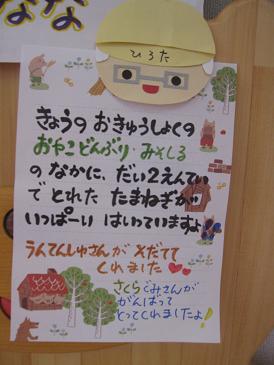 なな
ひろた
きょうの おきゅうしょくの
おやこどんぶり・みそしる
の なかに、だい2えんてい
で とれた たまねぎが
いっぱーい はいっていますよ!!
うんてんしゅさんが そだてて
くれました
さくらぐみさんが
がんばって
とってくれましたよ!